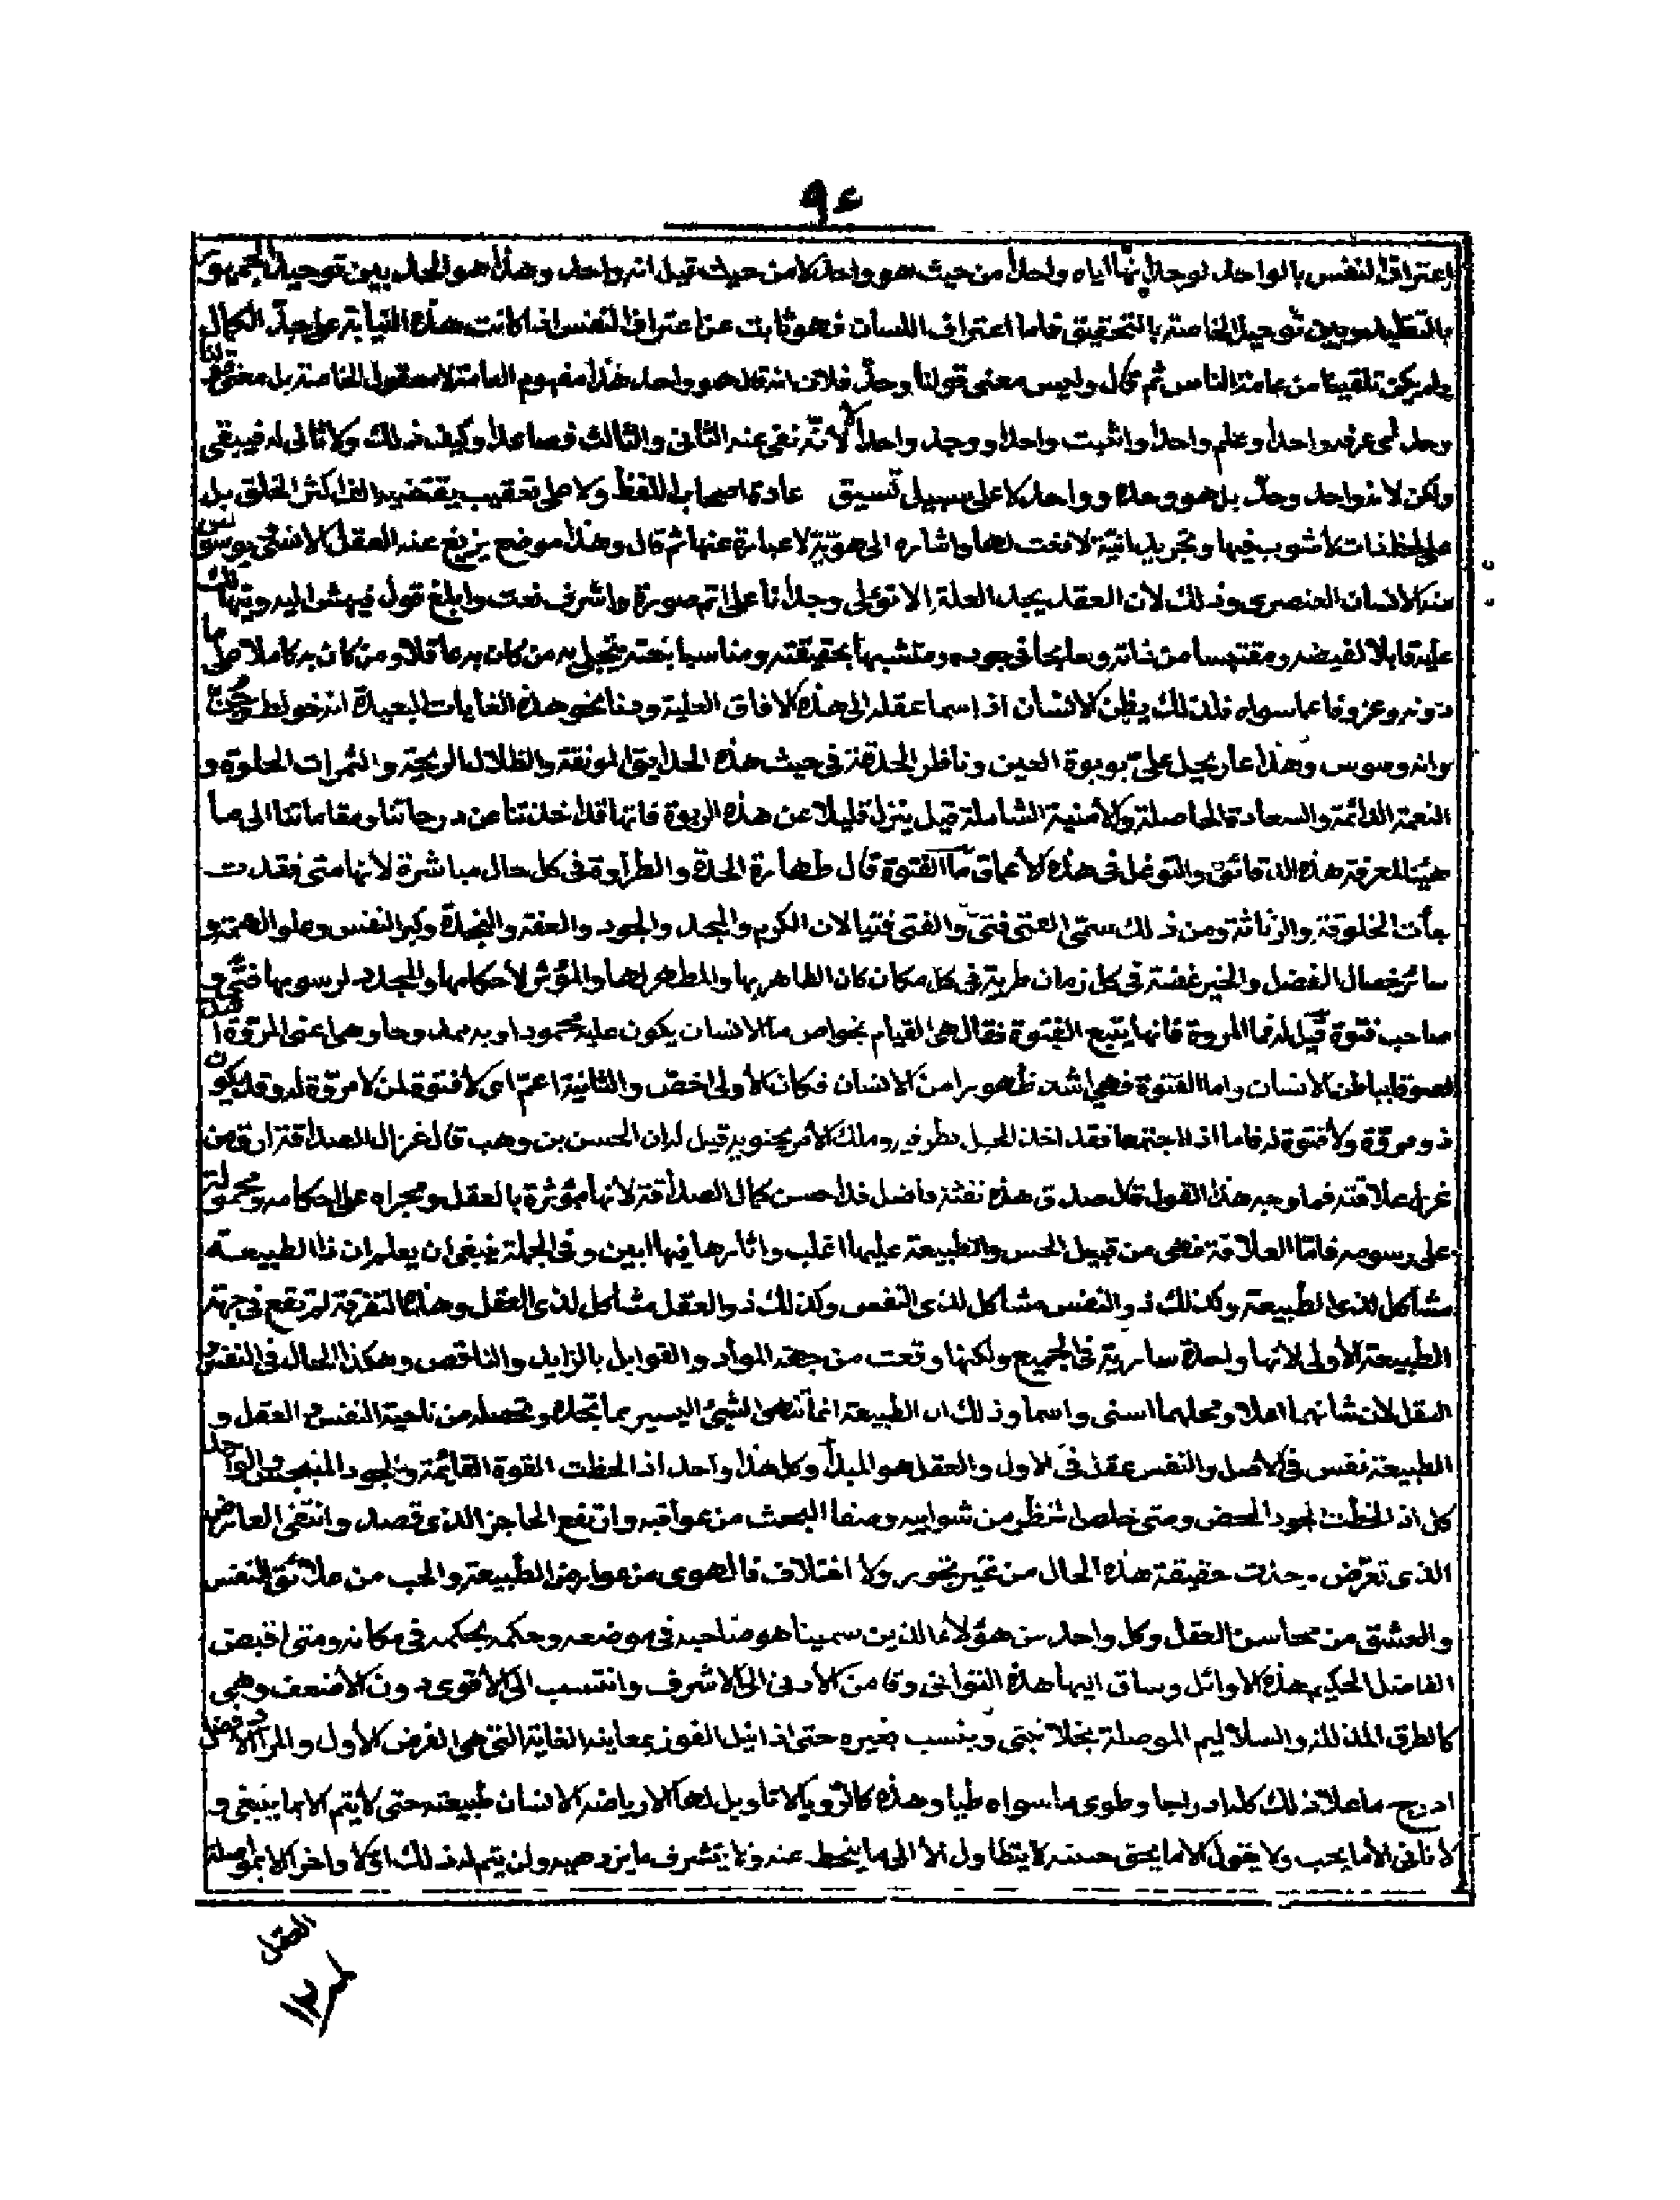 ٩٤
اعتراف النفس بالواحد لوجدانها اياه واحدا من حيث هو واحد لا من حيث قيل انه واحد وهذا هو الحد بين توحيد الجمهور
بالتقليد وبين توحيد الخاصة بالتحقيق فاما اعتراف اللسان فهو ثابت عن اعتراف النفس اذا كانت هذه النيابة على حد الكمال
ولم يكن تلقينا من عامة الناس ثم قال وليس معنى قولنا وحد فلان انه قال هو واحد هذا مفهوم العامة لا معقول الخاصة بل معنى قولنا
وحد اى عرفه واحدا وعلم واحدا واثبت واحدا ووجد واحدا لا لأنه نفى عنه الثانى والثالث فصاعدا وكيف ذلك ولا ثانى له فيبقى
ولكن لانه واحد وحد بل هو وحده وواحد لا على سبيل تنسيق عادة اصحاب اللفظ ولا على تعقيب يقتضيه الف اكثر الخلق بل
على لحظ ذات لا شوب فيها وتجريد انية لا نعت لها واشاره الى هوية لا عبارة عنها ثم قال وهذا موضع يزيغ عنه العقل الانسى
عند الانسان العنصرى وذلك لان العقل يجد العلة الاولى وجدانا على اتم صورة واشرف نعت وابلغ قول فيهش اليه
عليه قابلا لفيضه ومقتبسا من ذاته وسابحا فى جوده ومتشبها بحقيقته ومناسبا بنعته يتجلى به من كان به عاقلا ومن كان به كاملا على ما
دونه وعزوفا عما سواه فلذلك يظن الانسان اذا سما عقله الى هذه الافاق العلية ودنا نحو هذه الغايات البعيدة انه خولط وجن
وانه وسوس وهذا عار يحيل على بوبوة العين وناظر الحدقة فى حيث هذه الحدايق المونقة والظلال الريحية والثمرات الحلوة و
النعمة الدائمة والسعادة الحاصلة والأمنية الشاملة قيل ينزل قليلا عن هذه الربوة فانها قد اخذتنا عن درجاتنا ومقاماتنا الى ما
هيئنا لمعرفة هذه الدقائق والتوغل فى هذه الأعماق ما الفتوة قال طهارة الجدة والطراوة فى كل حال مباشرة لانها متى فقدت
جأت الخلوقة والرثاثة ومن ذلك سمى الفتى فتى والفتى فتيا لان الكرم والمجد والجود والعفة والنجدة وكبر النفس وعلو الهمة و
سائر خصال الفضل والخير غضة فى كل زمان طرية فى كل مكان كان الظاهر بها والمطهر لها والمؤثر لأحكامها والمجدد لرسومها فتى و
صاحب فتوة قيل له فما المروة فانها يتبع الفتوة فقال هى القيام بخواص ما للانسان يكون عليه محمودا وبه ممدوحا وهى اعنى المروة اشد
لصوقا بباطن الانسان واما الفتوة فهى اشد ظهورا من الانسان فكان الأولى اخص والثانية اعم اى لا فتوة لمن لا مروة له وقد يكون
ذو مروة ولا فتوة له فاما اذا اجتمعا فقد اخذ الحبل بطرفيه وملك الأمر بحنويه قيل له ان الحسن بن وهب قال غزال الصداقة ارق من
غزل علاقته فما وجه هذا القول قال صدق هذه نفثة فاضل قد احسن كمال الصداقة لانها مؤثرة بالعقل ومجراه على احكامه ومحمولة
على رسومه فاما العلاقة فهى من قبيل الحس والطبيعة عليها اغلب واثارها فيها ابين وفى الجملة ينبغى ان يعلم ان ذا الطبيعة
مشاكل لذى الطبيعة وكذلك ذو النفس مشاكل لذى النفس وكذلك ذو العقل مشاكل لذى العقل وهذه التفرقة لم تقع فى جهة
الطبيعة الأولى لانها واحدة سارية فى الجميع ولكنها وقعت من جهة المواد والقوابل بالزايد والناقص وهكذا الحال فى النفس و
العقل لان شانهما اعلا ومحلهما اسنى واسما وذلك ان الطبيعة انما تنهى الشئ اليسير بما تجده وتحصله من ناحية النفس العقل و
الطبيعة نفس فى الاصل والنفس عقل فى الاول والعقل هو المبدأ وكل هذا واحد اذا لحظت القوة القائمة والجود المنبجس والواحد
كل اذا لحظت الجود المحض ومتى خلص النظر من شوايبه وصفا البحث من عواقبه وارتفع الحاجز الذى قصد وانتفى العارض
الذى تعرض وجدت حقيقة هذه الحال من غير تجوير ولا اختلاف فالهوى من عوارض الطبيعة والحب من علائق النفس
والعشق من محاسن العقل وكل واحد من هؤلاء الذين سميناهم صاحبه فى موضعه وحكمه بحكمه فى مكانه ومتى اقبض
الفاضل الحكيم هذه الاوائل وساق اليها هذه الثوانى وقا من الأدنى الى الاشرف وانتسب الى الأقوى دون الأضعف وهى
كالطرق المذللة والسلاليم الموصلة وينسب بغيره حتى اذا نيل الفوز بمعاينة الغاية التى هى الغرض الأول والمراد الافضل
ادرج ما علا ذلك كله ادراجا وطوى ما سواه طيا وهذه كالرويا لا تاويل لها الا رياضة الانسان طبيعته حتى لا يتم الا بما ينبغى و
لا ياتى الا ما يحب ولا يقول الا ما يحق حسنه لا يتطاول الا الى ما ينحط عنه ولا يتشرف ما يزدحمه ولن يتم له ذلك اولا واخرا الا بمواصلة
العقل
١٢